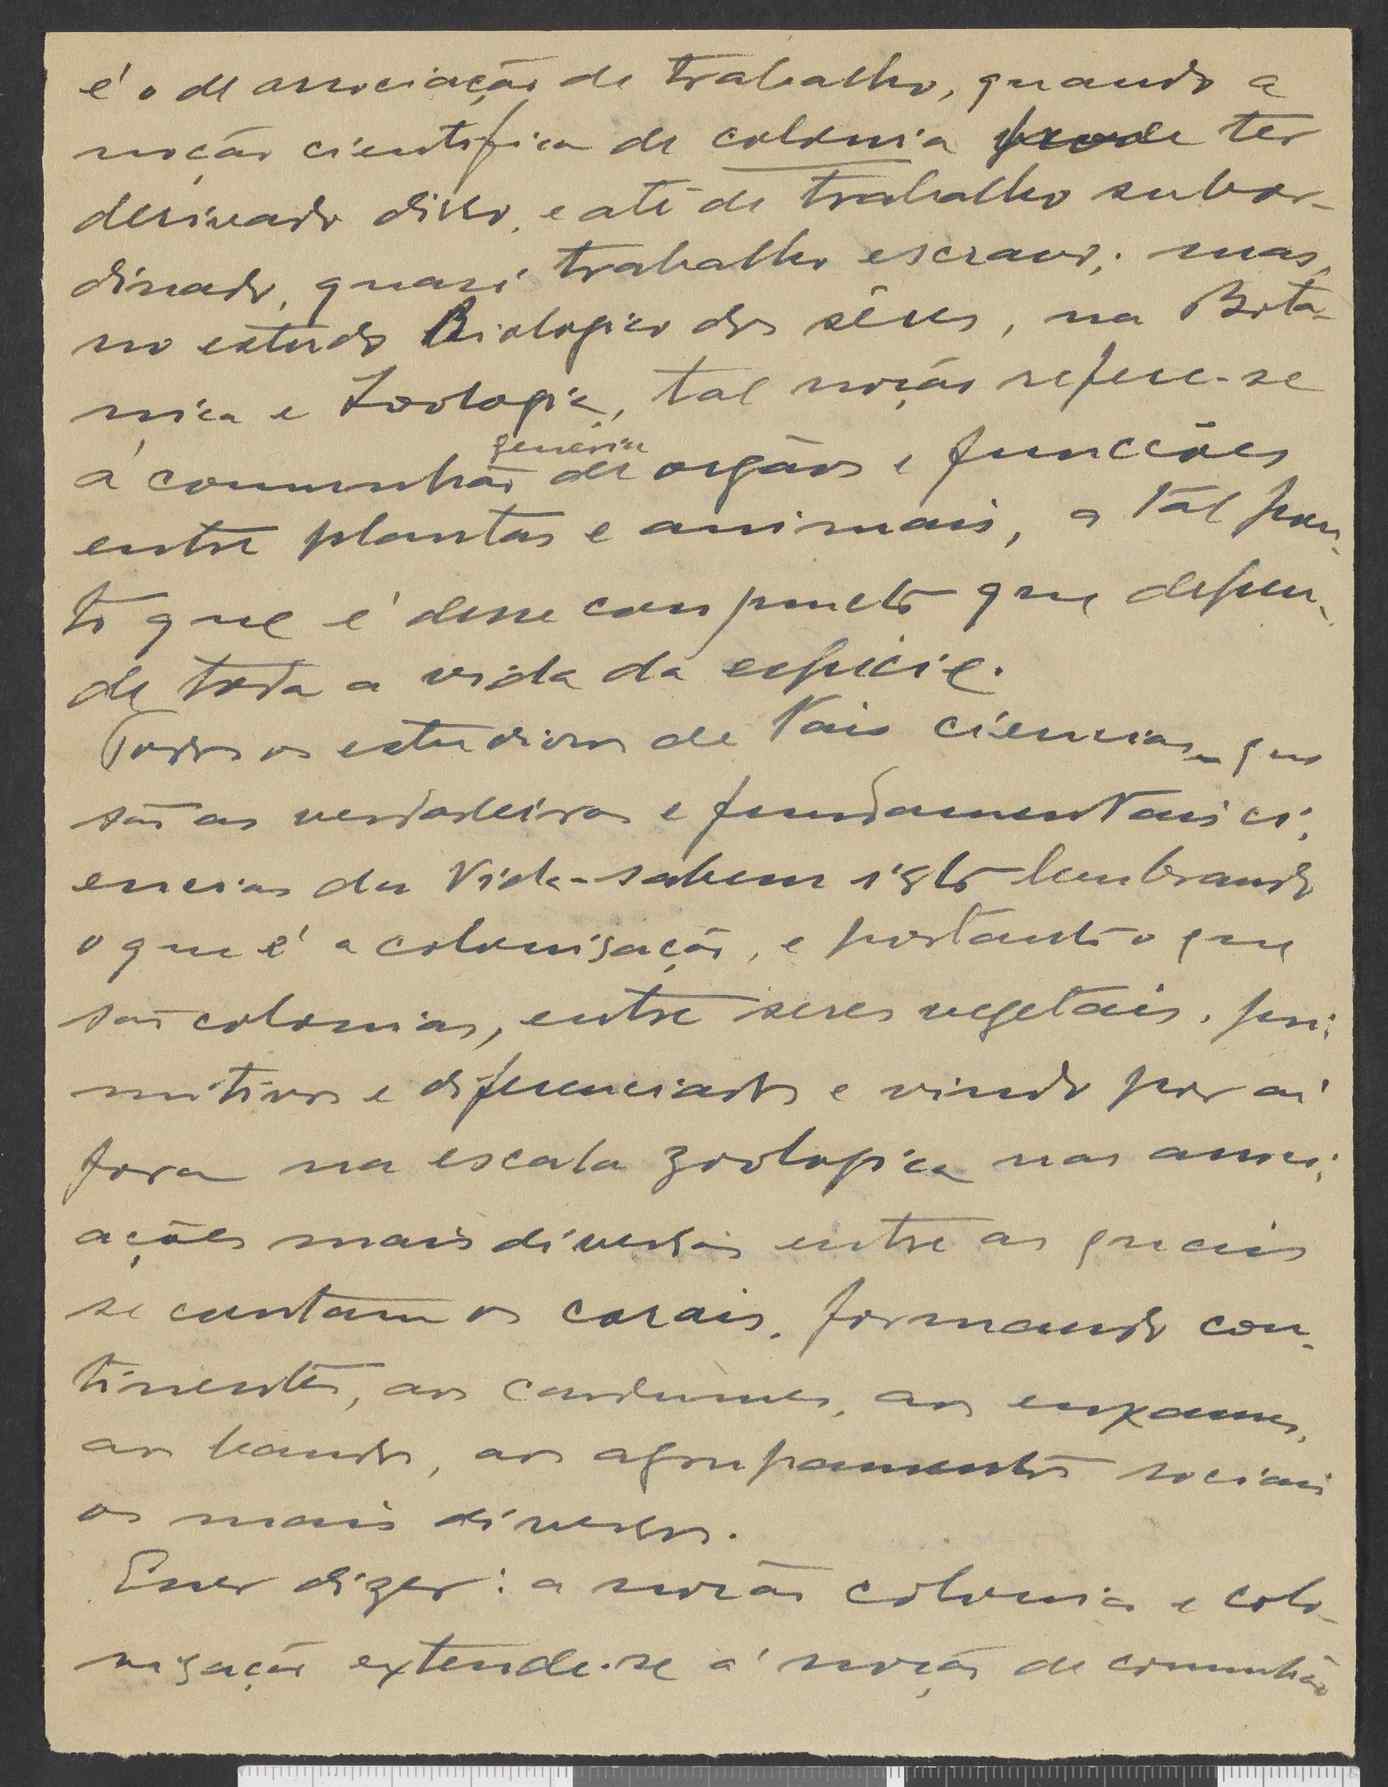 é o de associação de trabalho, quando a
noção cientifica de colonia pode ter
derivado disso, e até de trabalho subor-
dinado, quasi trabalho escravo; mas,
no estudo Biologico dos sêres, na Bota-
nica e Zoologia, tal noção refere-se
generica
á comunhão de orgãos e funcções
entre plantas e animais, a tal pon-
to que é desse conjuncto que depen-
de toda a vida da especie.
Todos os estudiosos de tais ciencias – que
são as verdadeiras e fundamentais ci-
encias da Vida – sabem isto lembrando
o que é a colonisação, e portanto o que
são colonias, entre seres vegetais, pri-
mitivos e diferenciados e vindo por aí
fora na escala zoologica nas associ-
ações mais diversas entre as quais
se contam os corais, formando con-
tinentes, aos cardumes, aos enxames,
aos bandos, aos agrupamentos sociais
os mais diversos.
Quer dizer: a noção colonia e colo-
nização extende-se á noção de comunhão